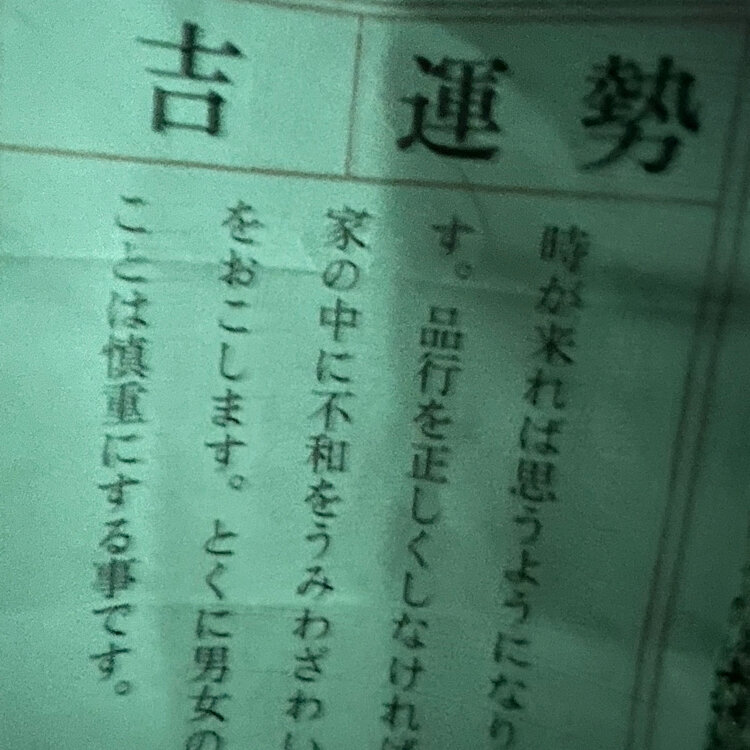 運勢
吉
時が来れば思うようになり
す。品行を正しくしなければ
家の中に不和をうみわざわい
をおこします。とくに男女の
ことは慎重にする事です。